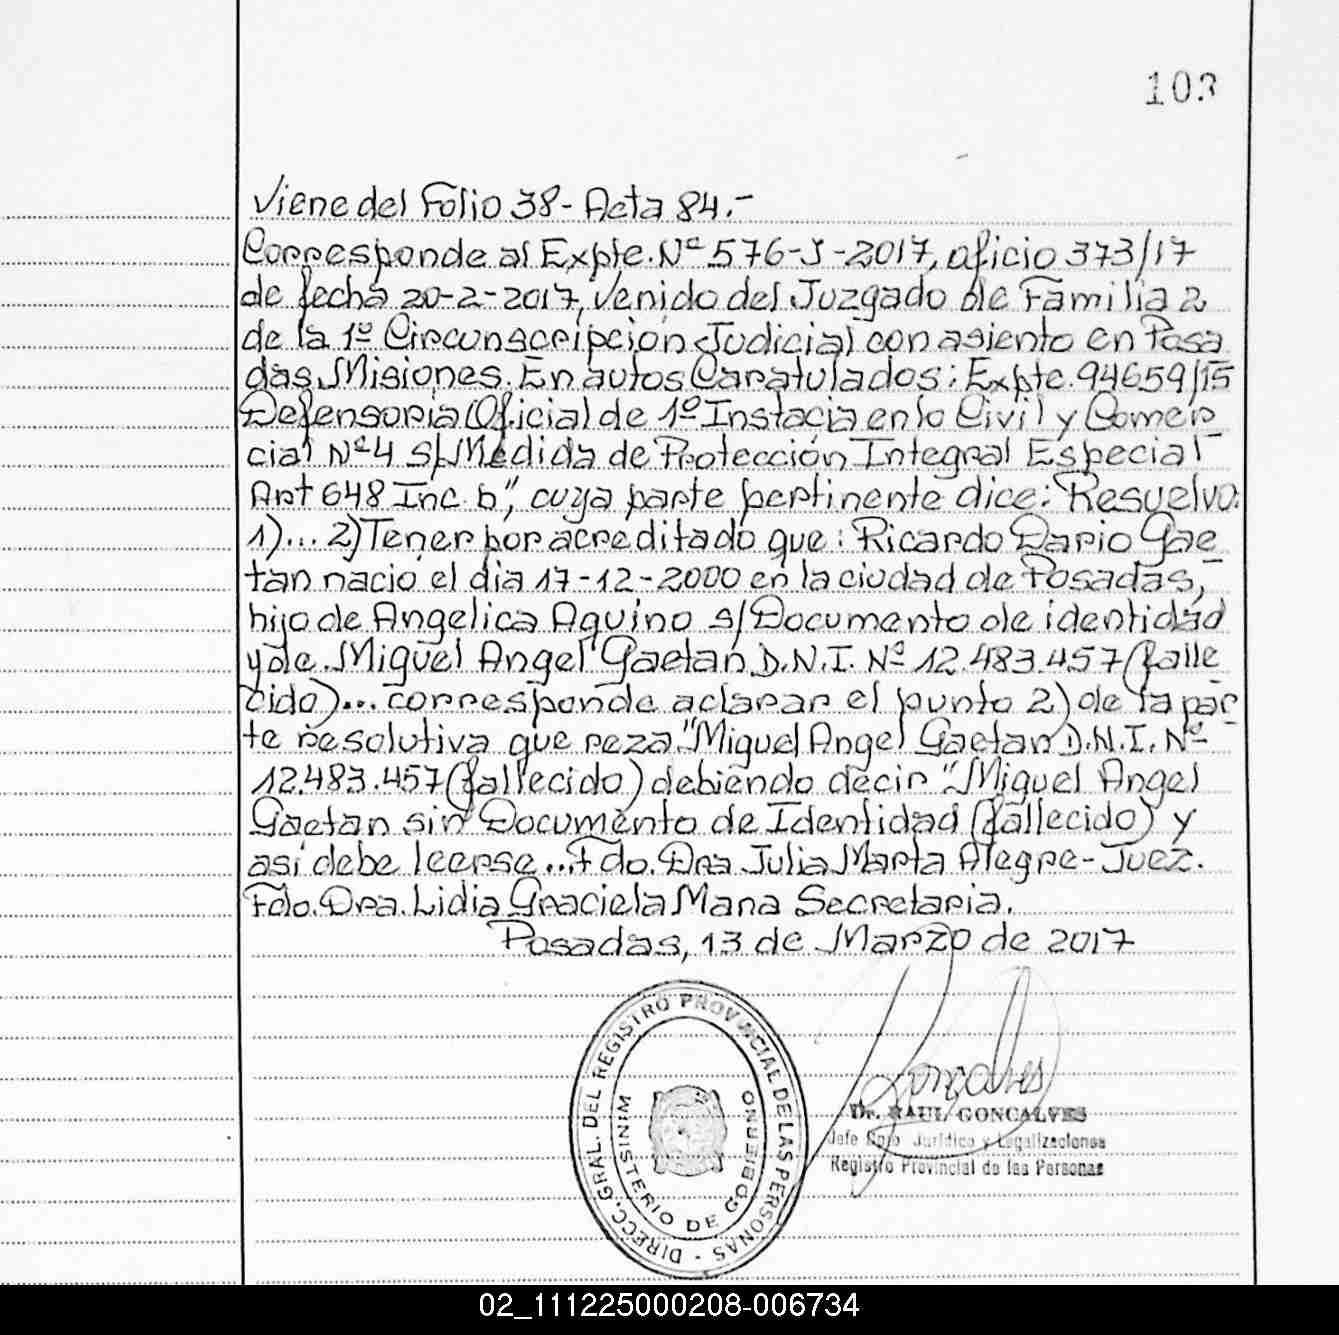 103
Viene del Folio 38- Acta 84.-
Corresponde al Expte. Nº 576-J-2017, oficio 373/17
de fecha 20-2-2017, venido del Juzgado de Familia 2
de la 1º Circunscripción Judicial con asiento en Posa
das, Misiones. En autos Caratulados: Expte. 94659/15
Defensoria Oficial de 1º Instacia en lo Civil y Comer
cial Nº4 S/ Medida de Protección Integral Especial
Art 648 Inc. b", cuya parte pertinente dice: Resuelvo:
1)... 2) Tener por acreditado que: Ricardo Dario Gae
tan nació el dia 17-12-2000 en la ciudad de Posadas,
hijo de Angelica Aquino s/Documento de identidad
y de Miguel Angel Gaetan D.N.I. Nº 12.483.457 (falle
cido)... corresponde aclarar el punto 2) de la par
te resolutiva que reza "Miguel Angel Gaetan D.N.I. Nº
12.483.457 (fallecido) debiendo decir "Miguel Angel
Gaetan sin Documento de Identidad (fallecido) y
así debe leerse... Fdo. Dra Julia Marta Alegre- Juez.
Fdo. Dra. Lidia Graciela Mana Secretaria.
Posadas, 13 de Marzo de 2017
DIRECC. GRAL. DEL REGISTRO PROVINCIAL DE LAS PERSONAS -
MINISTERIO DE GOBIERNO
Goncalves
Dr. RAUL GONCALVES
Jefe Dpto Jurídico y Legalizaciones
Registro Provincial de las Personas
02_111225000208-006734